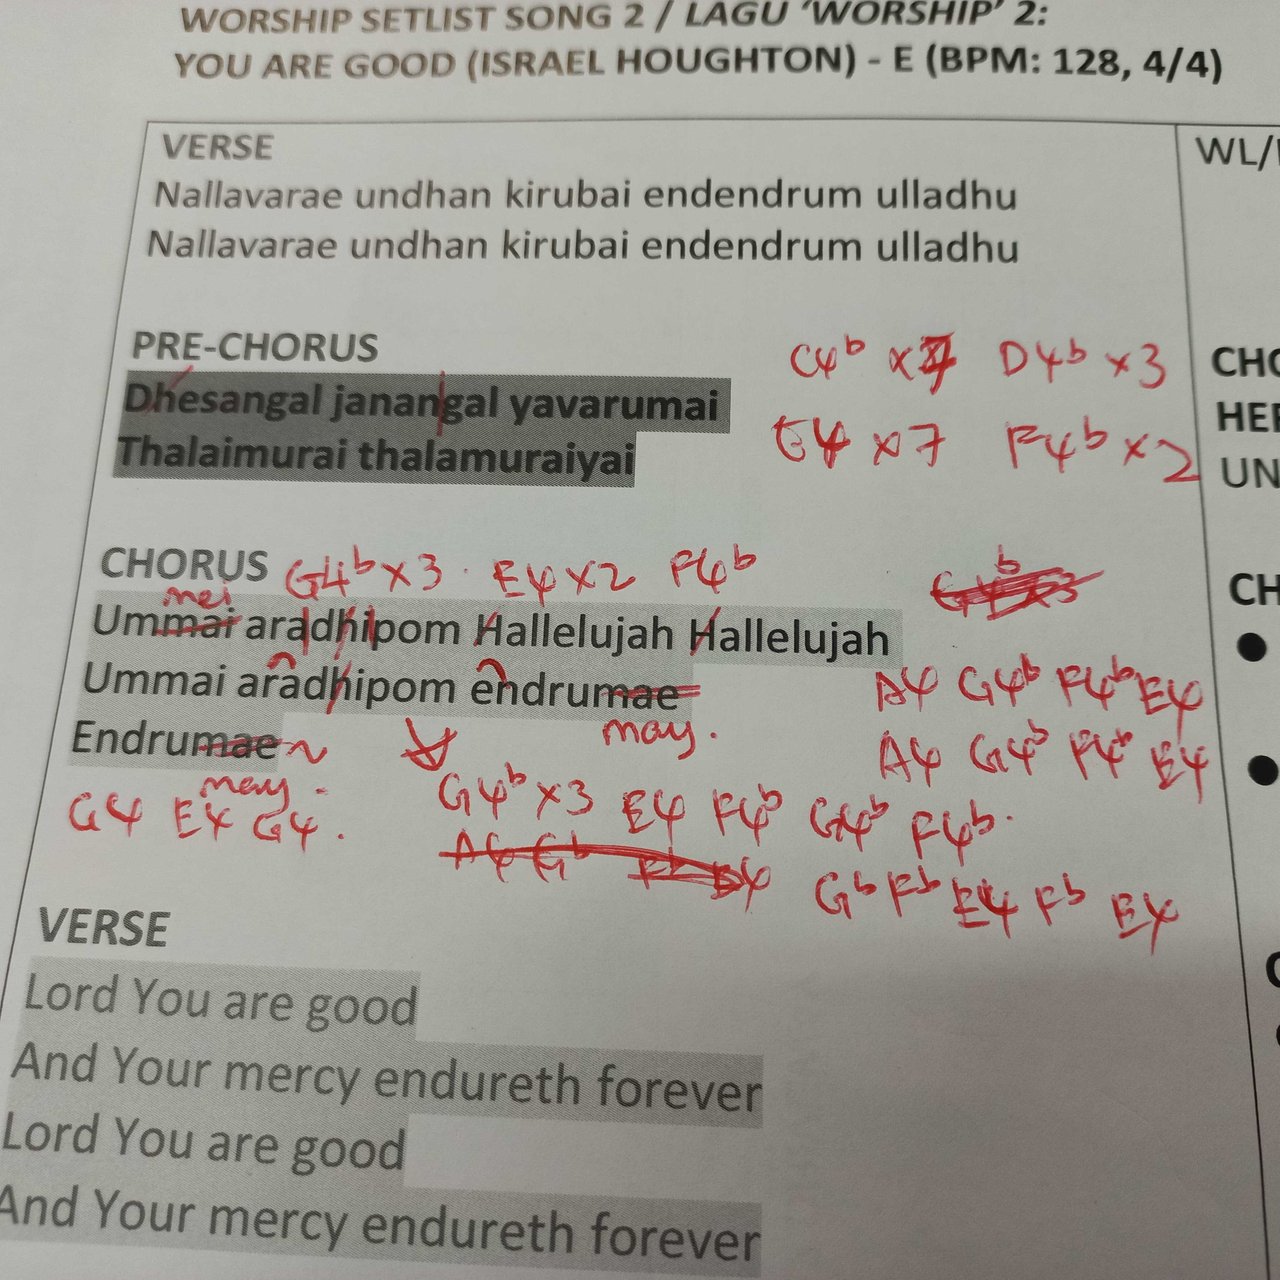 WORSHIP SETLIST SONG 2 / LAGU ‘WORSHIP’ 2:
YOU ARE GOOD (ISRAEL HOUGHTON) - E (BPM: 128, 4/4)
VERSE
WL/
Nallavarae undhan kirubai endendrum ulladhu
Nallavarae undhan kirubai endendrum ulladhu
PRE-CHORUS
C4b x7 D4b x3
CHO
Dhesangal janangal yavarumai
HER
E4 x7 F4b x2
Thalaimurai thalamuraiyai
UN
CHORUS
G4b x3 . E4 x2 F4b
CH
mei
Ummai aradhipom Hallelujah Hallelujah
Ummai aradhipom endrumae
A4 G4b F4b E4
may.
Endrumae ~
A4 G4b F4b E4
may.
G4b x3 E4 F4b G4b F4b.
G4 E4 G4.
A4 Gb Fb E4
Gb Fb E4 Fb E4
VERSE
Lord You are good
And Your mercy endureth forever
Lord You are good
And Your mercy endureth forever